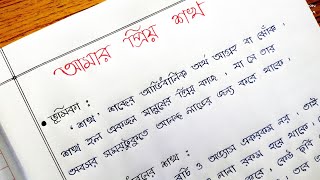 আমার প্রিয় শখ
● ভূমিকা :
শখ, শব্দের আভিধানিক অর্থ আগ্রহ বা ঝোঁক।
শখ হলো একজন মানুষের প্রিয় কাজ, যা সে তার
অবসর সময়টুকুতে আনন্দ লাভের জন্য করে থাকে।
শখ :
রুচি ও অভ্যাস একরকম নয়। তাই
নানা রকম হয়ে থাকে।
কেউ ছবি